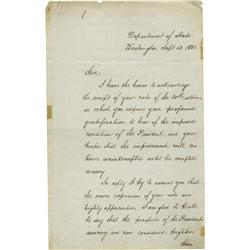 Department of State,
Washington, Sept. 13, 1881.
Sir:
I have the honor to acknowledge
the receipt of your note of the
in which you express your profound
gratification to hear of the improved
condition of the President, and your
hopes that the improvement will
continue uninterrupted until his complete
recovery.
In reply I beg to assure you that
the warm expressions of your note are
highly appreciated. I am glad to be able
to say that the prospects of the President's
recovery are now considered brighter
than